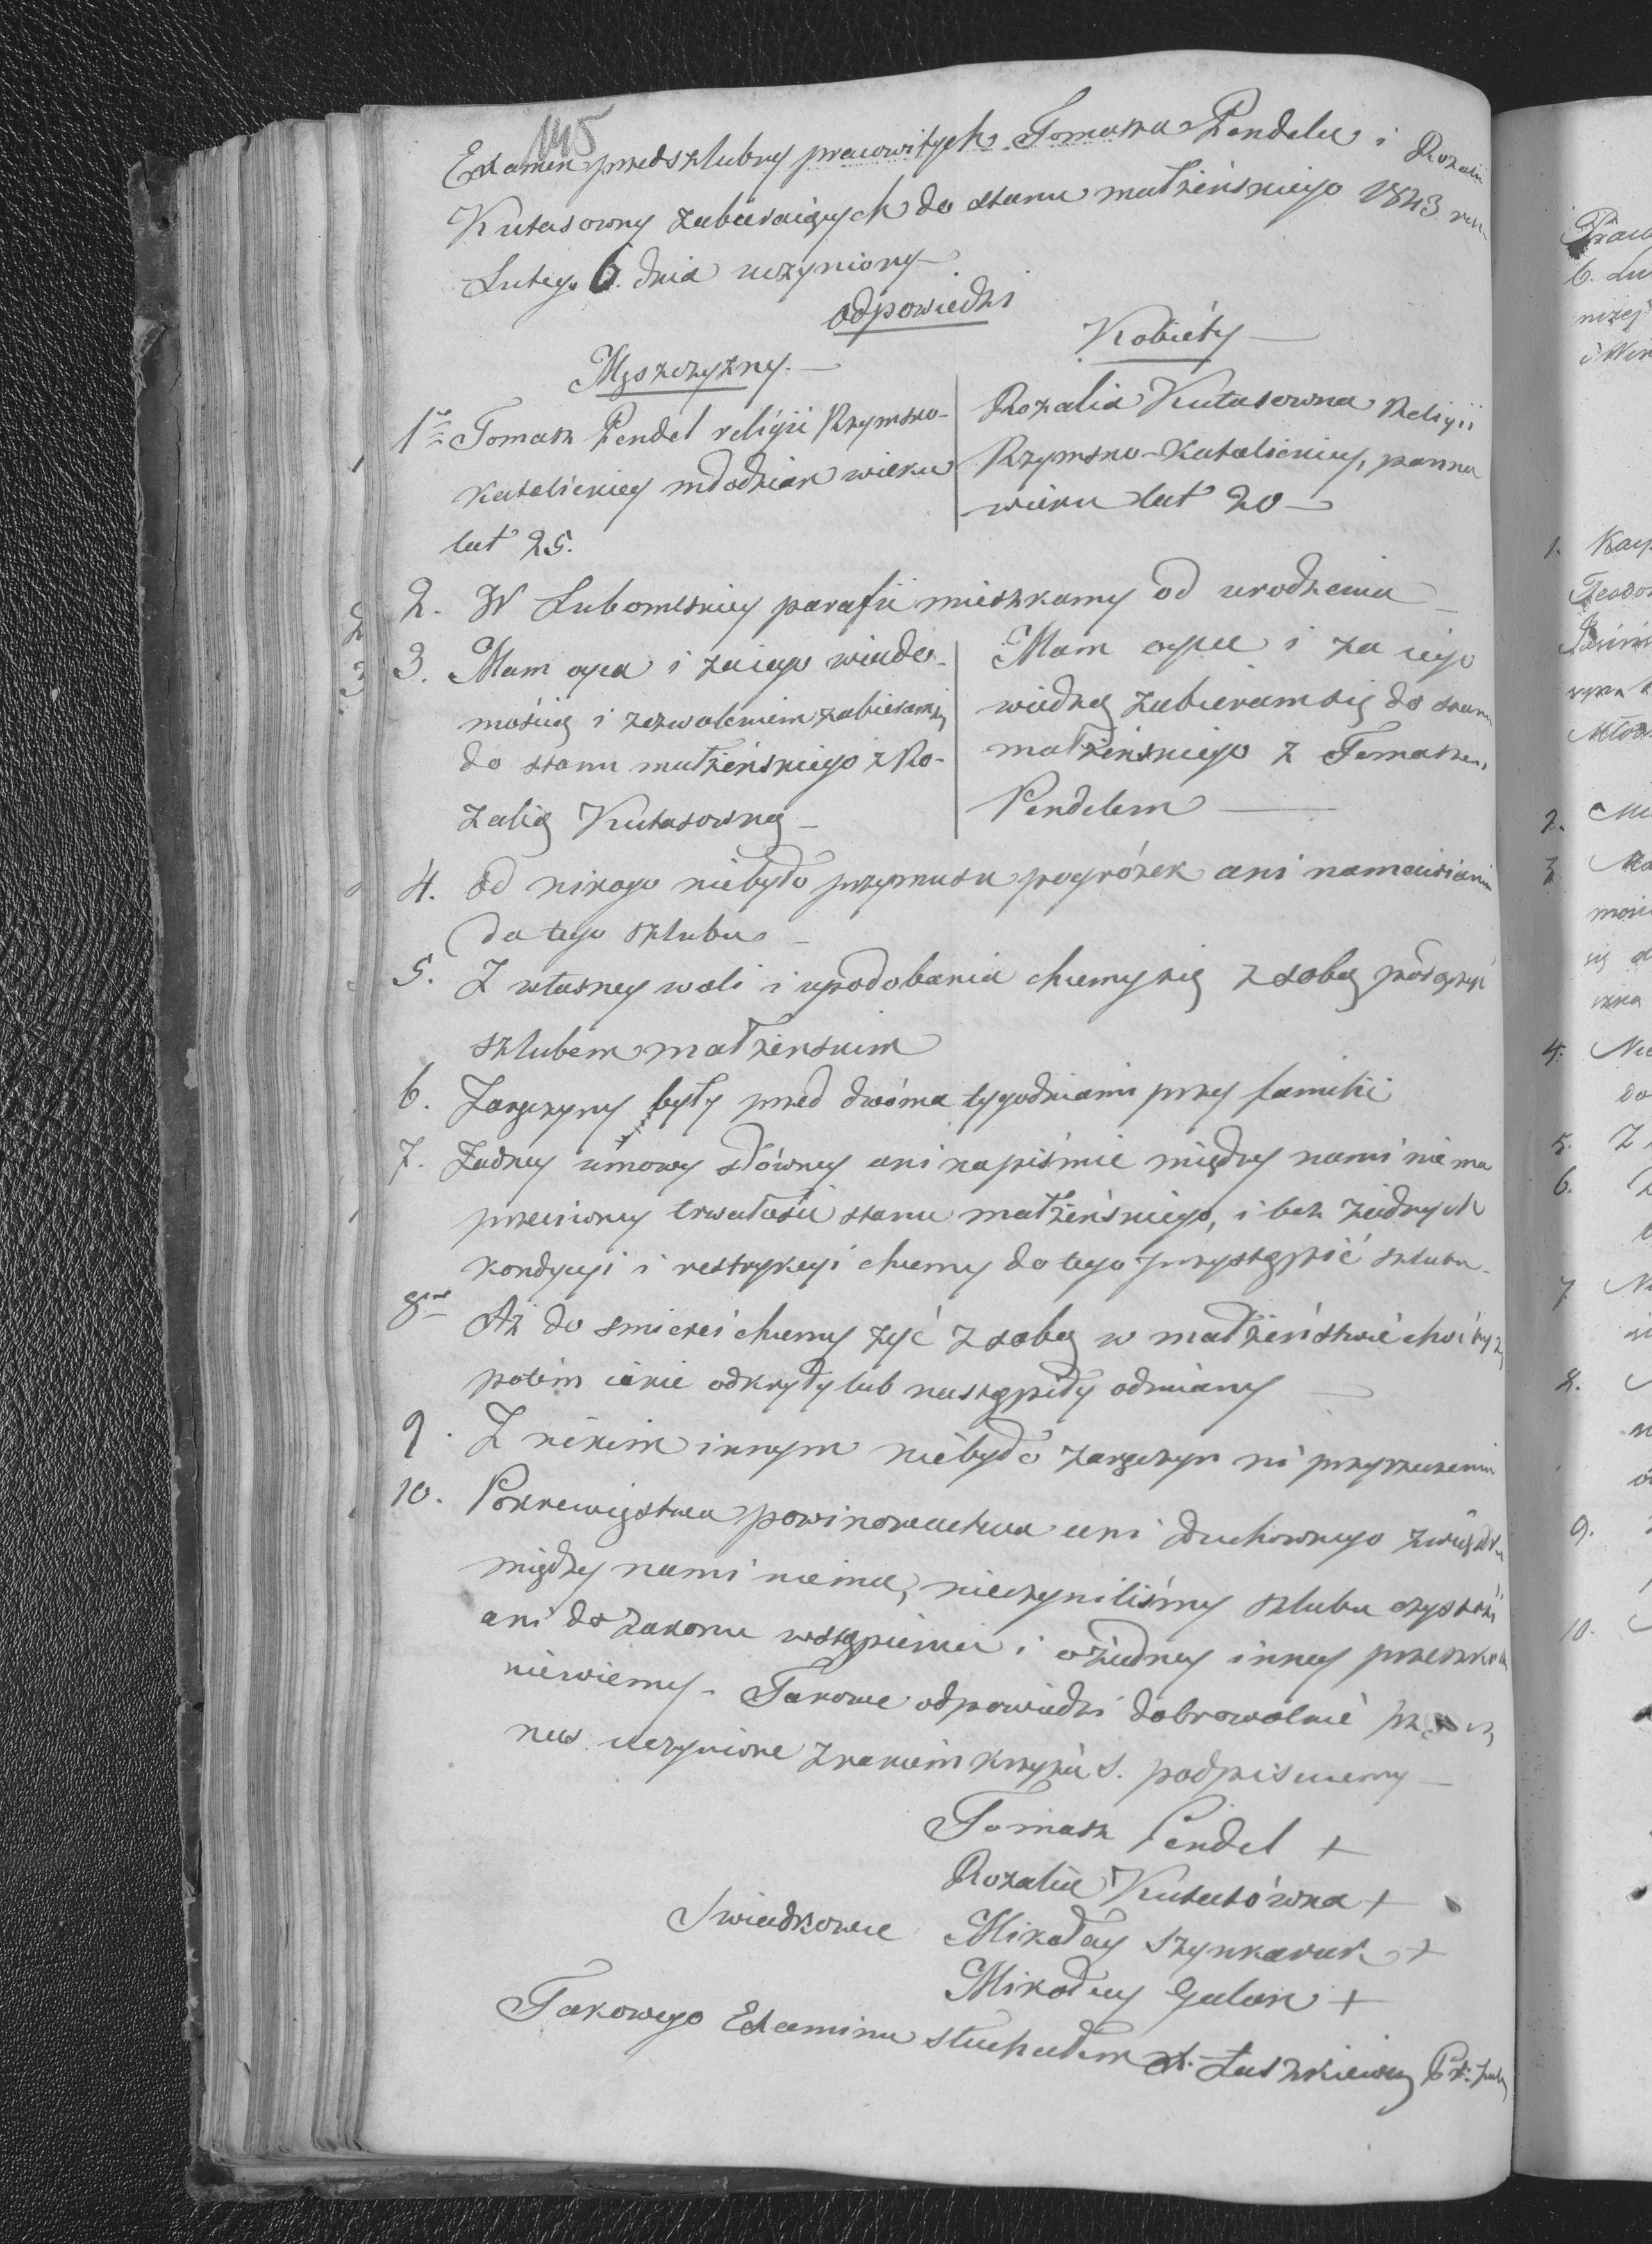 145
Examen przedszlubny pracowitych Tomasza Pendela i Rozalii
Kutasowny zabieraiących do stanu małżeńskiego 1843 roku
Lutego 6. dnia uczyniony
odpowiedzi
Męszczyzny.
Kobiéty
1. Tomasz Pendel religii Rzymsko-
katolickiey młodzian wieku
lat 25.
Rozalia Kutasowna Religii
Rzymsko-Katolickiey, panna
wieku lat 20
2. W Lubomlskiey parafii mieszkamy od urodzenia
3. Mam oyca i za iego wiado-
mością i zezwoleniem zabieram się
do stanu małżeńskiego z Ro-
zalią Kutasowną
Mam oyca i za iego
wiedzą zabieram się do stanu
małżeńskiego z Tomaszem
Pendelem
4. Od nikogo niebyło przymusu pogróżek ani namawiania
do tego szlubu
5. Z własney woli i upodobania chcemy się z sobą połączyć
szlubem małżenskim
6. Zaręczyny były przed dwóma tygodniami przy familii
7. Żadney umowy słówney ani napiśmie między nami niema
przeciwney trwałości stanu małżeńskiego, i bez żadnych
kondycyi i restrykcyi chcemy do tego przystąpić szlubu
8. Aż do smierci chcemy żyć z sobą w małżeństwie choćby
potém iakie odkryły lub nastąpiły odmiany
9. Z nikim innym niebyło zaręczyn ni przyrzeczenia
10. Pokrewięstwa powinowactwa ani duchownego związku
między nami niema, nieczyniliśmy szlubu czystości
ani do zakonu wstąpienia i o żadney inney przeszkodzie
niewiemy. Takowe odpowiedzi dobrowolnie przez
nas uczynione znakiem krzyża S. podpisuiemy
Tomasz Pendel +
Rozalia Kutasówna +
Swiadkowie Mikołay Szynkaruk +
Mikołay Galan +
Takowego Examinu słuchałem X. Łaszkiewicz
1
2
3
6. Lu
1.
2.
3
4.
do
5. Z
6.
7
8.
9.
10.